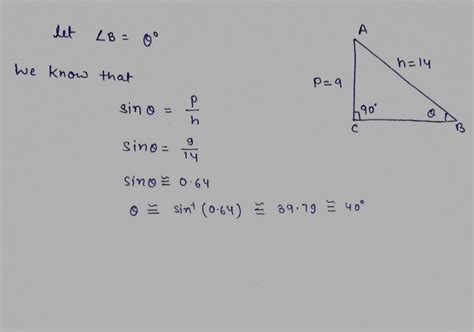 let ∠B = θ°
We know that
sinθ = P/h
sinθ = 9/14
sinθ ≅ 0.64
θ ≅ sin⁻¹(0.64) ≅ 39.79 ≅ 40°
A
P=9
h=14
90°
θ
C
B